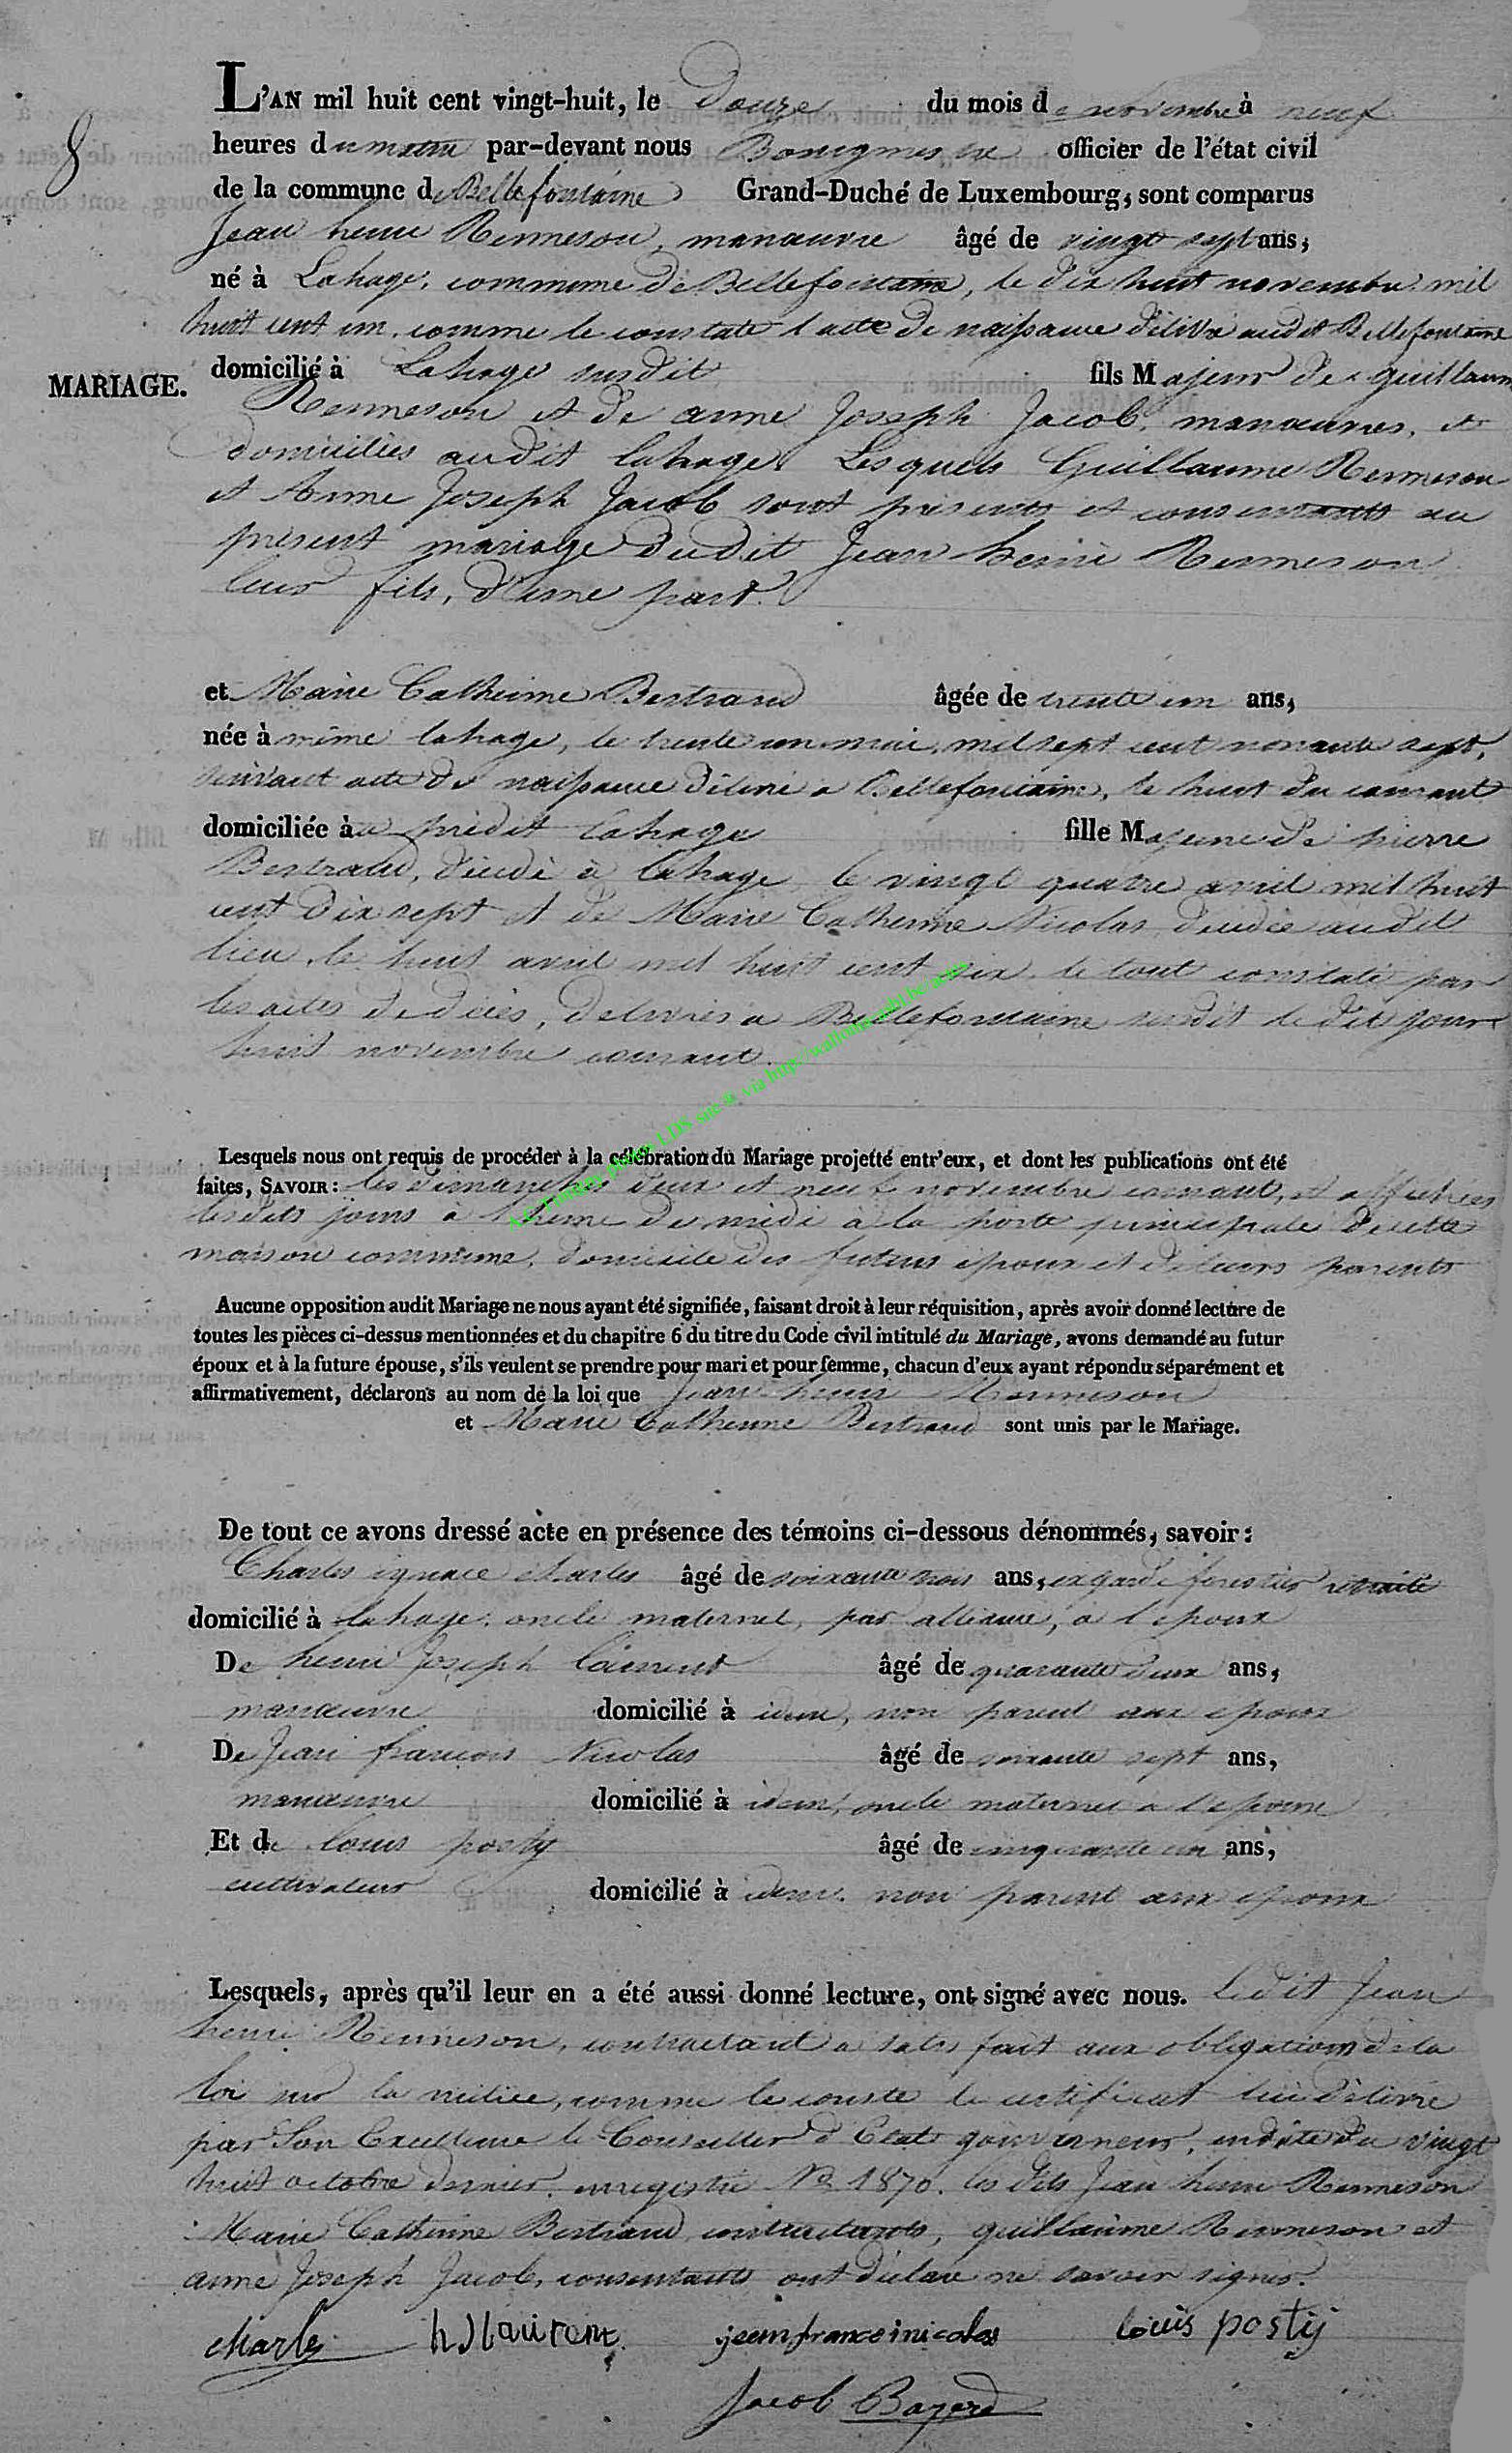 L'AN mil huit cent vingt-huit, le Douze du mois de novembre à neuf
8
heures du matin par-devant nous Bourgmestre officier de l'état civil
de la commune de Bellefontaine Grand-Duché de Luxembourg, sont comparus
Jean henri Renneson, manœuvre âgé de vingt sept ans,
né à Lahage, commune de Bellefontaine, le dix huit novembre mil
huit cent un, comme le constate l'acte de naissance délivré audit Bellefontaine
MARIAGE.
domicilié à Lahage susdit fils Majeur de guillaume
Renneson et de anne Joseph Jacob, manœuvres, et
domiciliés audit lahage. Lesquels Guillaume Renneson
et Anne Joseph Jacob sont présents et consentants au
présent mariage dudit Jean henri Renneson
leur fils, d'une part.
et Marie Catherine Bertrand âgée de trente un ans,
née à même lahage, le trente un mai, mil sept cent nonante sept,
suivant acte de naissance délivré a Bellefontaine, le huit du courant
domiciliée à u prédit lahage fille Majeure de pierre
Bertrand, décédé à lahage le vingt quatre avril mil huit
cent dix sept et de Marie Catherine Nicolas décédée audit
lieu, le huit avril mil huit cent six. le tout constaté par
les actes de décès, délivrés a Bellefontaine susdit ledit jour
huit novembre courant.
Lesquels nous ont requis de procéder à la célébration du Mariage projetté entr'eux, et dont les publications ont été
faites, SAVOIR: les dimanches deux et neuf novembre courant, et affichées
lesdits jours à l'heure de midi à la porte principale de cette
maison commune, domicile des futurs époux et de leurs parents
Aucune opposition audit Mariage ne nous ayant été signifiée, faisant droit à leur réquisition, après avoir donné lecture de
toutes les pièces ci-dessus mentionnées et du chapitre 6 du titre du Code civil intitulé du Mariage, avons demandé au futur
époux et à la future épouse, s'ils veulent se prendre pour mari et pour femme, chacun d'eux ayant répondu séparément et
affirmativement, déclarons au nom de la loi que Jean henri Renneson
et Marie Catherine Bertrand sont unis par le Mariage.
De tout ce avons dressé acte en présence des témoins ci-dessous dénommés, savoir:
Charles ignace charles âgé de soixante trois ans, ex garde forestier retraité
domicilié à lahage, oncle maternel, par alliance, a l'époux
De henri Joseph Laurent âgé de quarante deux ans,
manœuvre domicilié à idem, non parent aux époux
De Jean françois Nicolas âgé de soixante sept ans,
manœuvre domicilié à idem, oncle maternel a l'épouse
Et de louis posty âgé de cinquante un ans,
cultivateur domicilié à idem. non parent aux époux
Lesquels, après qu'il leur en a été aussi donné lecture, ont signé avec nous. Ledit Jean
henri Renneson, contractant a satisfait aux obligations de la
loi sur la milice, comme le conste le certificat lui délivré
par Son Excellence le Conseiller d'Etat gouverneur, en date du vingt
huit octobre dernier, enregistré No 1870. les dits Jean henri Renneson
Marie Catherine Bertrand contractants, guillaume Renneson et
anne Joseph Jacob, consentants ont déclaré ne savoir signer.
charles hJlaurent jeanfranceinicolas Louis postij
Jacob